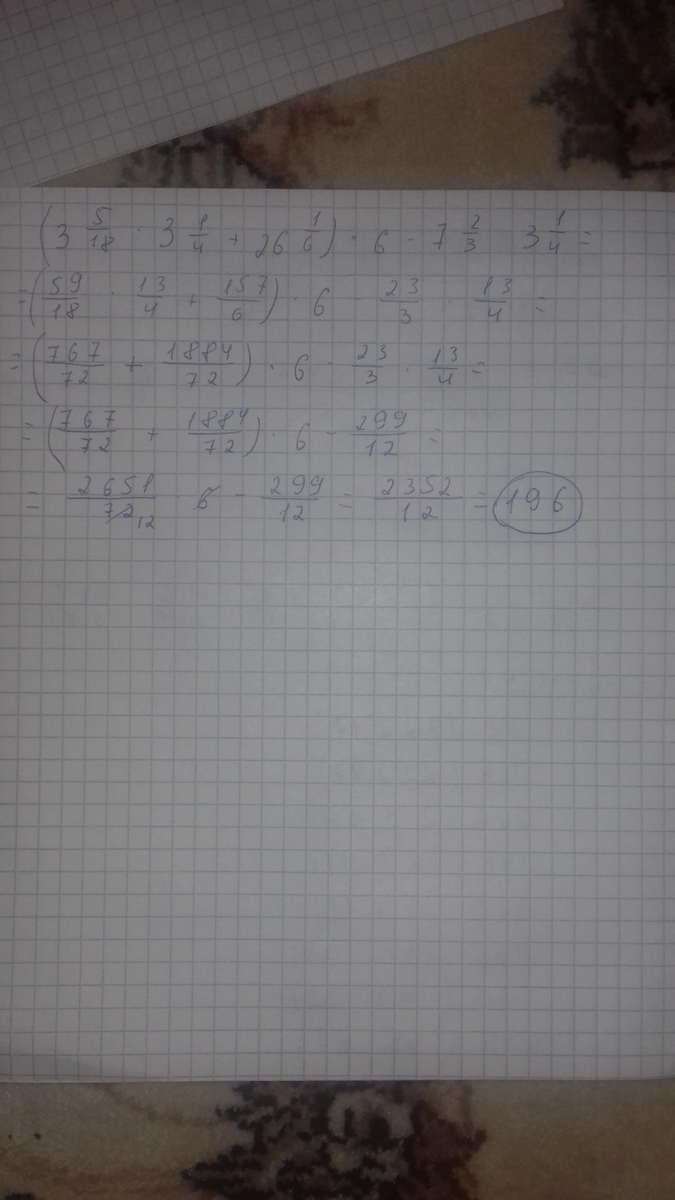 (3 5/18 · 3 1/4 + 26 1/6) · 6 - 7 2/3 3 1/4 =
= (59/18 · 13/4 + 157/6) · 6 - 23/3 · 13/4 =
= (767/72 + 1884/72) · 6 - 23/3 · 13/4 =
= (767/72 + 1884/72) · 6 - 299/12 =
= 2651/72 12 6 - 299/12 = 2352/12 = 196